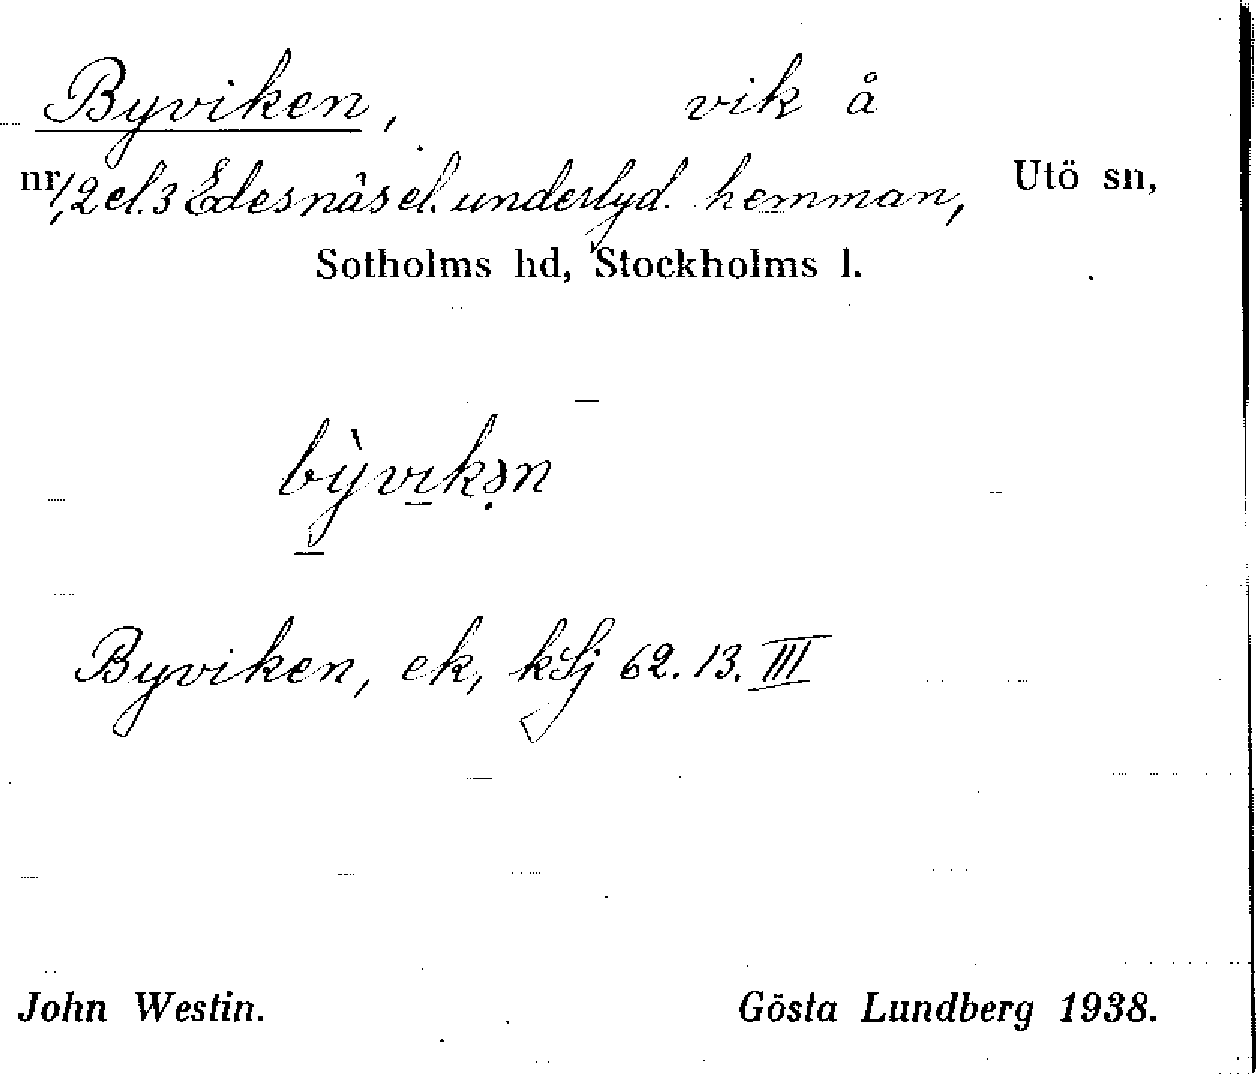 Byviken, vik å
nr 1, 2 el. 3 Edesnäs el. underlyd. hemman, Utö sn,
Sotholms hd, Stockholms l.
bỳvikən
Byviken, ek, 62. 13. III
John Westin. Gösta Lundberg 1938.